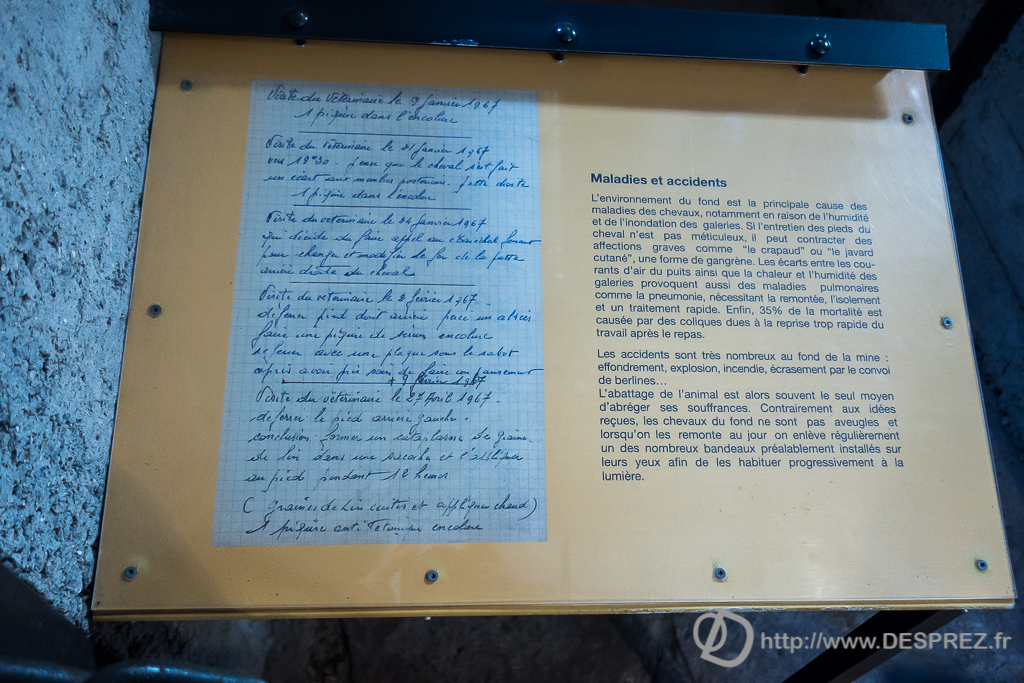 Visite du Vétérinaire le 9 Janvier 1967
1 piqûre dans l'encolure
Visite du Vétérinaire le 21 Janvier 1967
vers 19h30 - pense que le cheval s'est fait
un écart aux membres postérieurs. patte droite
1 piqûre dans l'encolure
Visite du vétérinaire le 24 Janvier 1967
qui décide de faire appel au Maréchal ferrant
pour changer et modifier le fer de la patte
arrière droite du cheval
Visite du vétérinaire le 2 février 1967
déferrer pied droit arrière percé un abcès
faire une piqûre de encolure
referrer avec une plaque sous le sabot
après avoir pris soin de faire un pansement
+ 9 février 1967
Visite du vétérinaire le 27 Avril 1967.
déferrer le pied arrière gauche.
conclusion: former un cataplasme de graine
de lin dans une et l'appliquer
au pied pendant heures
( graines de lin cuites et appliquer chaud )
1 piqûre anti Tétanique encolure
Maladies et accidents
L'environnement du fond est la principale cause des
maladies des chevaux, notamment en raison de l'humidité
et de l'inondation des galeries. Si l'entretien des pieds du
cheval n'est pas méticuleux, il peut contracter des
affections graves comme "le crapaud" ou "le javard
cutané", une forme de gangrène. Les écarts entre les cou-
rants d'air du puits ainsi que la chaleur et l'humidité des
galeries provoquent aussi des maladies pulmonaires
comme la pneumonie, nécessitant la remontée, l'isolement
et un traitement rapide. Enfin, 35% de la mortalité est
causée par des coliques dues à la reprise trop rapide du
travail après le repas.
Les accidents sont très nombreux au fond de la mine :
effondrement, explosion, incendie, écrasement par le convoi
de berlines...
L'abattage de l'animal est alors souvent le seul moyen
d'abréger ses souffrances. Contrairement aux idées
reçues, les chevaux du fond ne sont pas aveugles et
lorsqu'on les remonte au jour on enlève régulièrement
un des nombreux bandeaux préalablement installés sur
leurs yeux afin de les habituer progressivement à la
lumière.
http://www.DESPREZ.fr